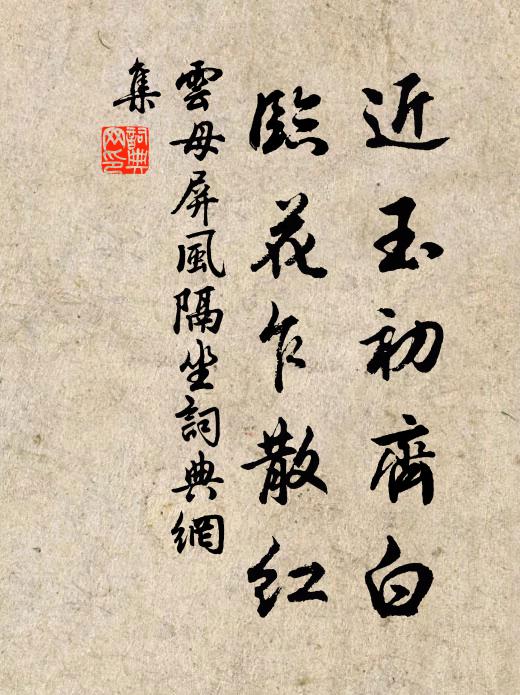 近玉初齊白
臨花乍散紅
雲母屏風隔坐詞典網
集
詞典
网印